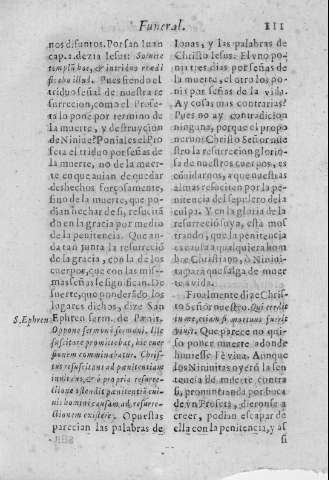 Funeral. 111
nos difuntos. Por san Iuan
cap. 2. dezia Iesus: Soluite
templũ hoc, & intribus reædi
ficabo illud. Pues siendo el
triduo señal de nuestra re
surreccion, como el Profe-
ta lo pone por termino de
la muerte, y destruycion
de Niniue? Poniales el Pro
feta el triduo por señas de
la muerte, no de la muer-
te en que auian de quedar
deshechos forçosamente,
sino de la muerte, que po-
dian hechar de si, resucitã
do en la gracia por medio
de la penitencia. Que an-
da tan junta la resurrecciõ
de la gracia, con la de los
cuerpos, que con las mis-
mas señas se significan. De
suerte, que ponderãdo los
lugares dichos, dize San
S. Ephren. Ephren serm. de Pænit.
Oppono sermoni sermoni. Ille
suscitare promittebat, hic euer
sionem comminabatur. Chris-
tus resuscitans ad pœnitentiam
inuitans, & à propria resurre-
ctione ostendit pœnitentiã cui-
uis homini causam, ad resurre-
ctionem existere. Opuestas
parecian las palabras de
Ionas, y las palabras de
Christo Iesus: El vno po-
nia tres dias por señas de
la muerte, el otro los po-
nis por señas de la vida.
Ay cosas mas contrarias?
Pues no ay contradicion
ninguna, porque el propo
nernos Christo Señor nũe
stro la resurreccion glorio-
sa de nuestros cuerpos, es
cõuidarnos, a que nuestras
almas resociten por la pe-
nitencia del sepulcro de la
culpa. Y en la gloria de la
resurrecciõ suya, està mos
trando, que la penitencia
es causa a qualquiera hom
bre Christiano, ò Niniui-
ta para que salga de muer
te a vida.
Finalmente dize Chris-
to Señor nuestro. Qui credit
in me, etiam si mortuus fuerit
viuit. Que parece no qui-
so poner muerte adonde
huuiesse Fè viua. Aunque
los Niniuitas oyerõ la sen
tencia de muerte contra
si, pronunciada por boca
de vn Profeta, dieronse a
creer, podian escapar de
ella con la penitencia, y as
si